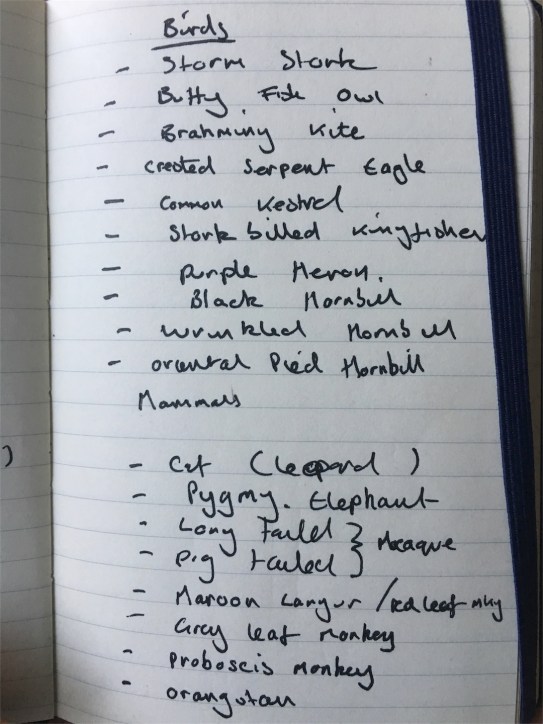 Birds
- Storm Stork
- Buffy Fish Owl
- Brahminy Kite
- crested Serpent Eagle
- Common Kestrel
- Stork billed Kingfisher
- Purple Heron.
- Black Hornbill
- Wrinkled Hornbill
- oriental Pied Hornbill
Mammals
)
- Cat (leopard)
- Pygmy. Elephant
- Long Tailed } Macaque
- Pig tailed
- Maroon Langur / red leaf mky
- Grey leaf monkey
- Proboscis monkey
- orangutan